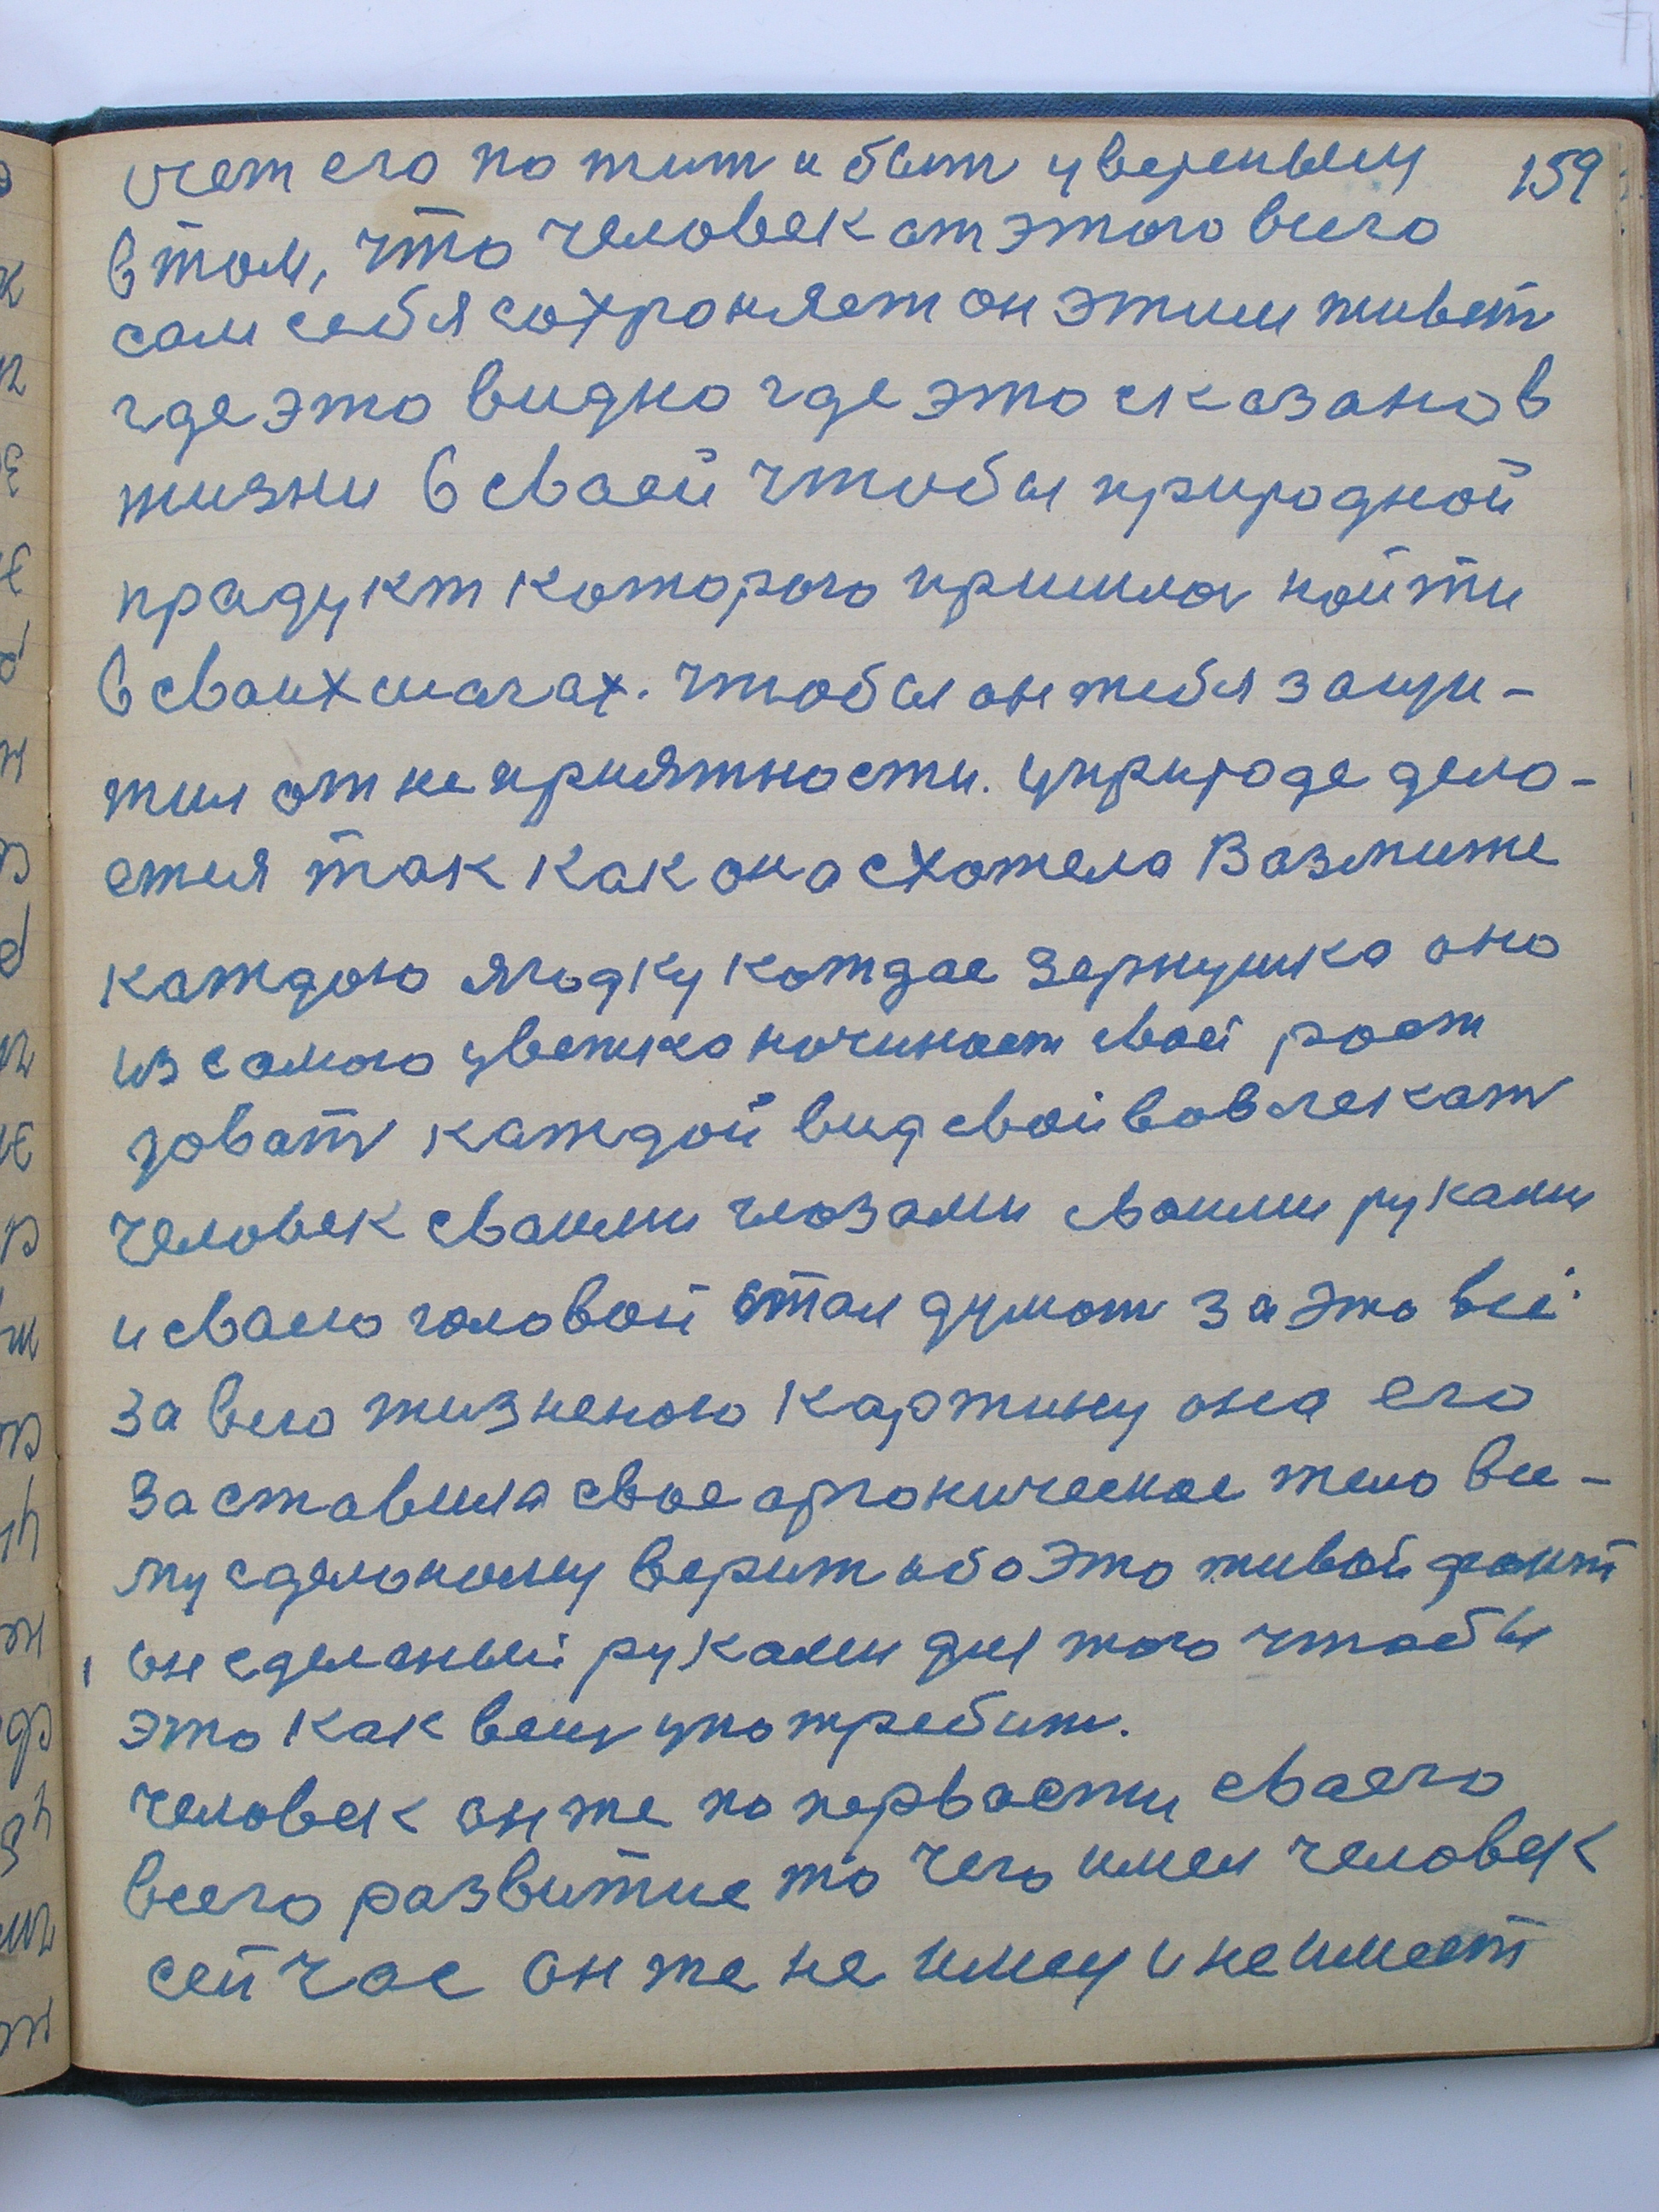 159
счет его пожит и быт увереным
в том, что человек от этого всего
сам себя сохроняет он этим живет
где это видно где это сказано в
жизни в сваей чтобы природной
прадукт которого пришлос найти
в сваих шагах. чтобы он тебя защи-
тил от неприятности. у природе дело-
ется так как она схотела Вазмите
каждою ягодку каждае зернушко оно
из самого цветка начинает свой рост
довать каждой вид свой вовлекат
человек сваими глазами сваими руками
и сваею головой стал думат за это всё
за всю жизненою картину она его
заставила свое органическае тело все-
му сделаному верит ибо это живой факт
он сделаный руками для того чтобы
это как вещ употребит.
человек он же по первости сваего
всего развитие то чего имел человек
сейчас он же не имел и не имеет